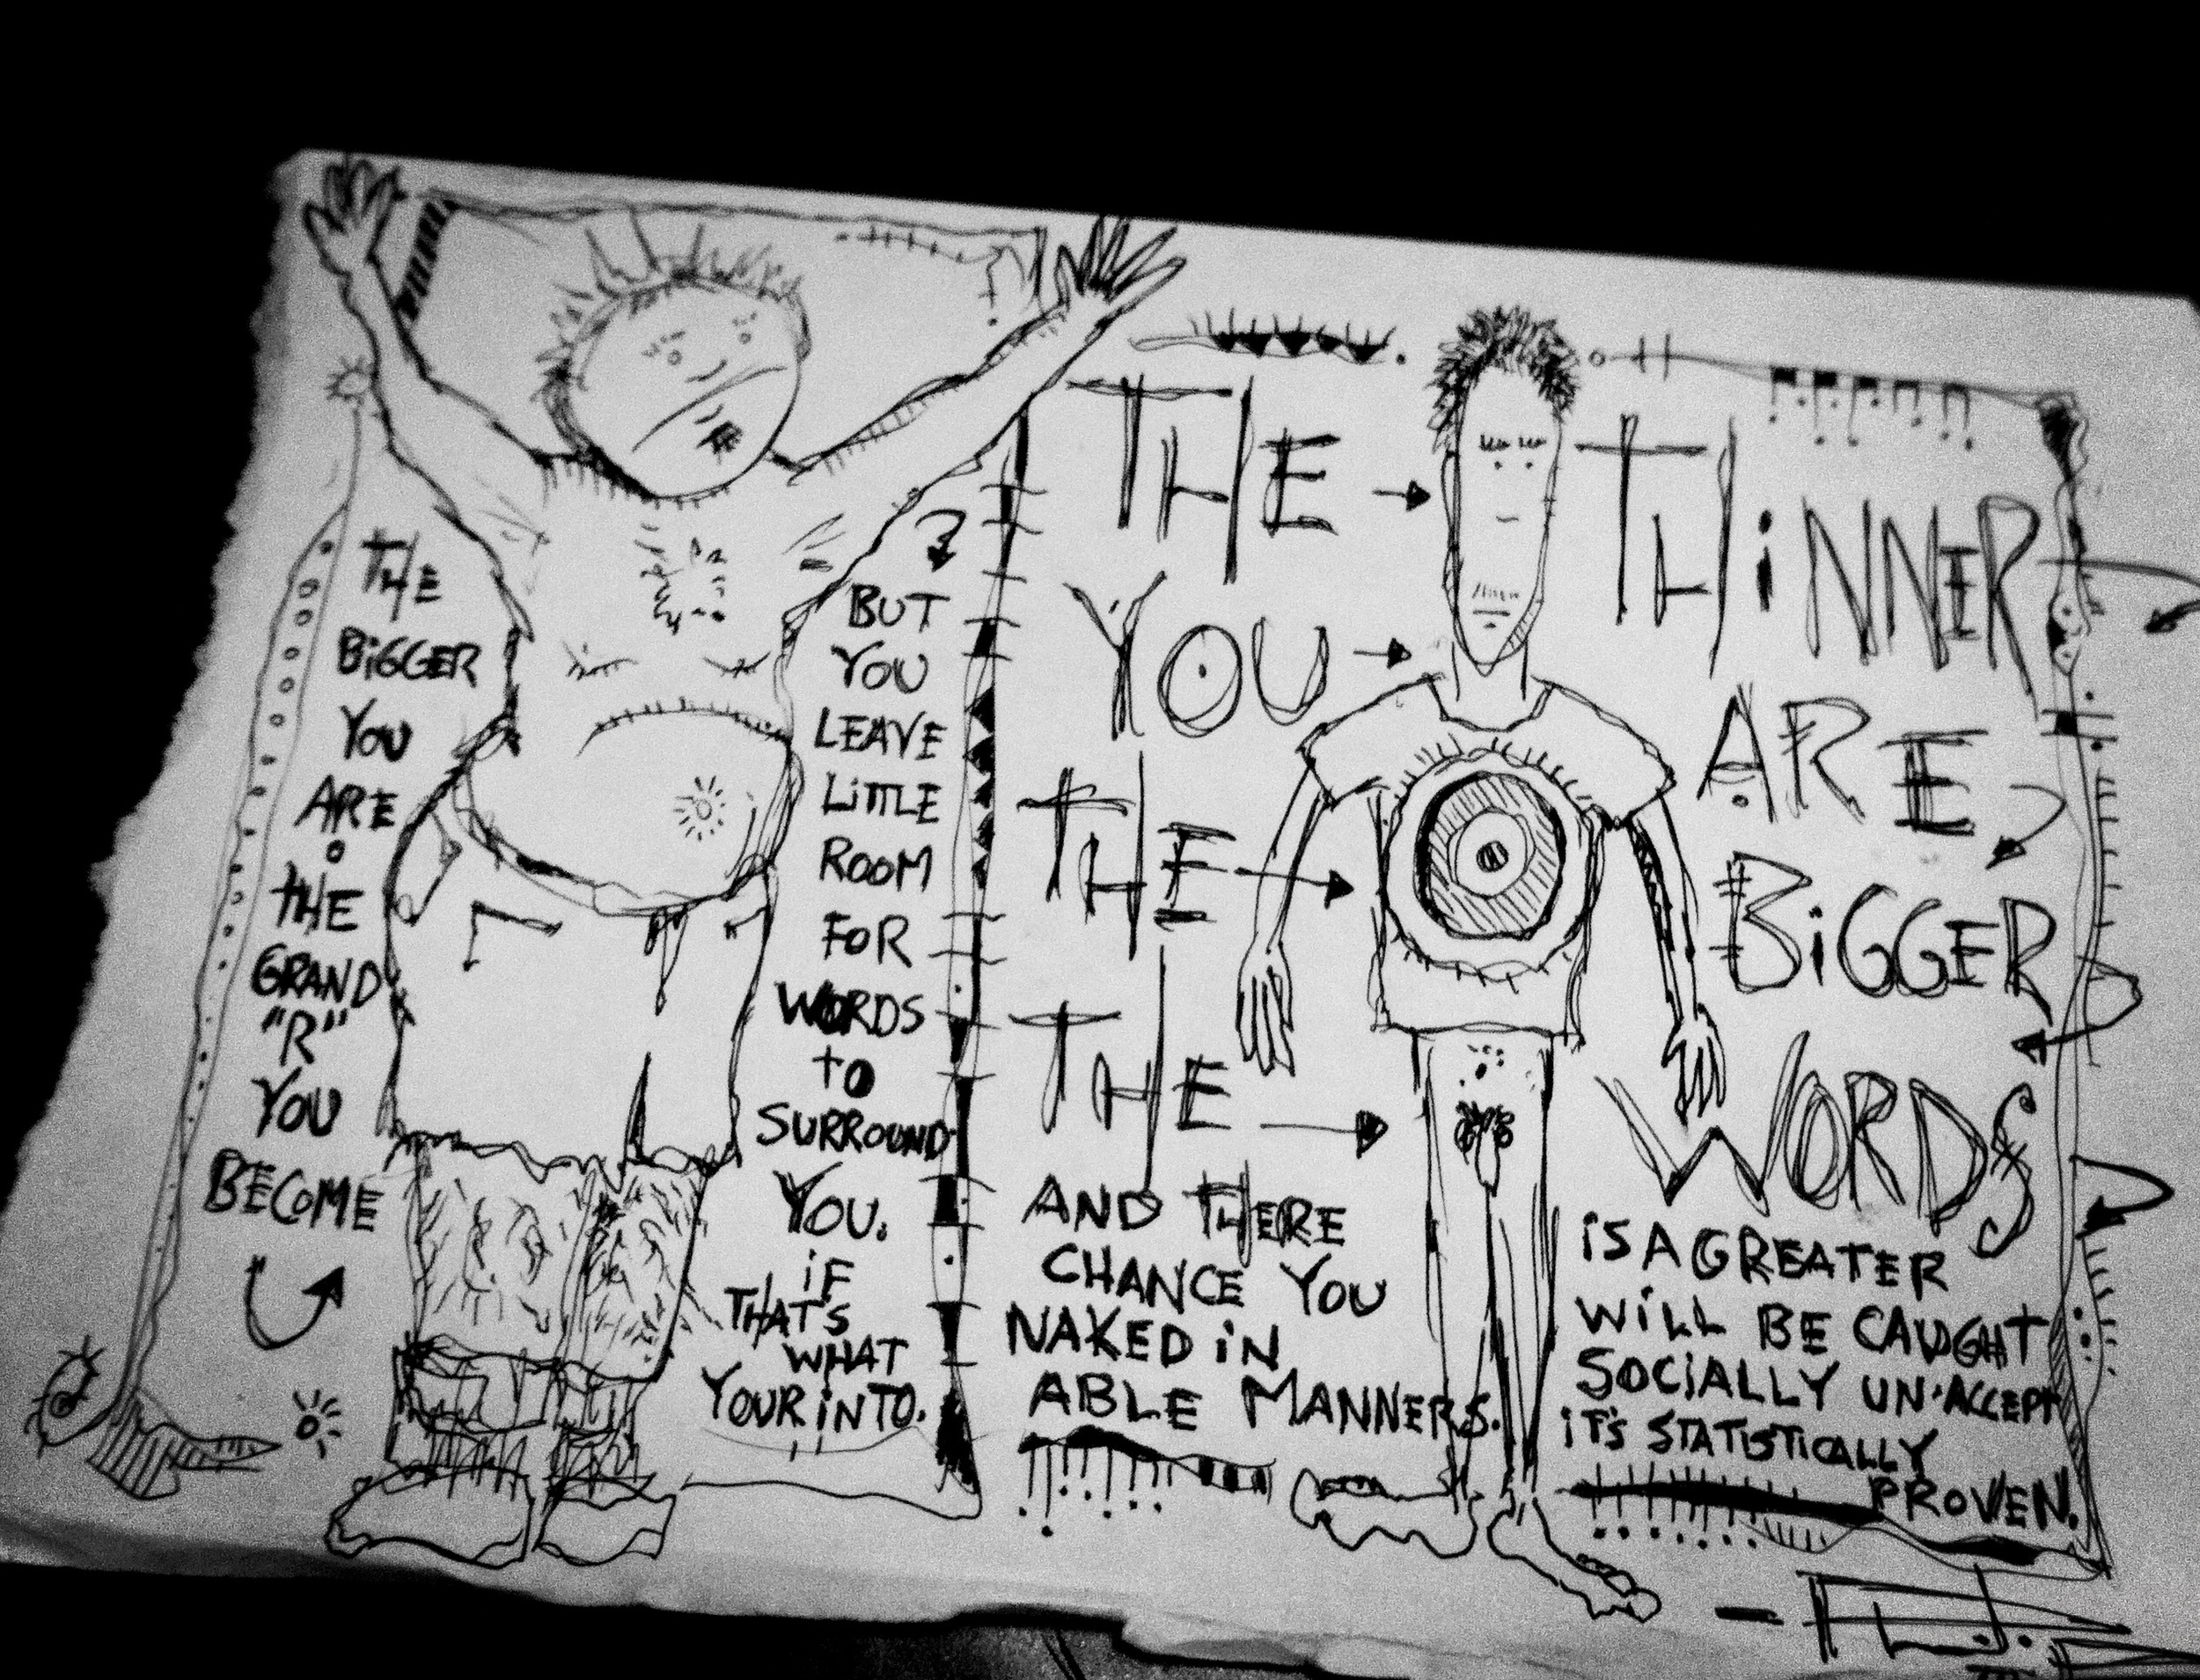 THE
BiGGER
YOU
ARE
THE
GRAND
"R"
YOU
BECOME
BUT
YOU
LEAVE
LiTTLE
ROOM
FOR
WORDS
TO
SURROUND
YOU.
iF
THAT'S
WHAT
YOUR iNTO.
THE THiNNER
YOU ARE
THE BiGGER
THE WORDS
AND THERE iS A GREATER
CHANCE YOU WiLL BE CAUGHT
NAKED iN SOCiALLY UN·ACCEPT
ABLE MANNERS. iT'S STATiSTiCALLY
PROVEN.